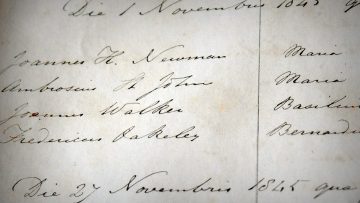 Die 1 Novembris 1845 qua
Joannes H. Newman Maria
Ambrosius St John Maria
Joannes Walker Basilius
Fredericus Oakeley Bernard
Die 27 Novembris 1845 qua